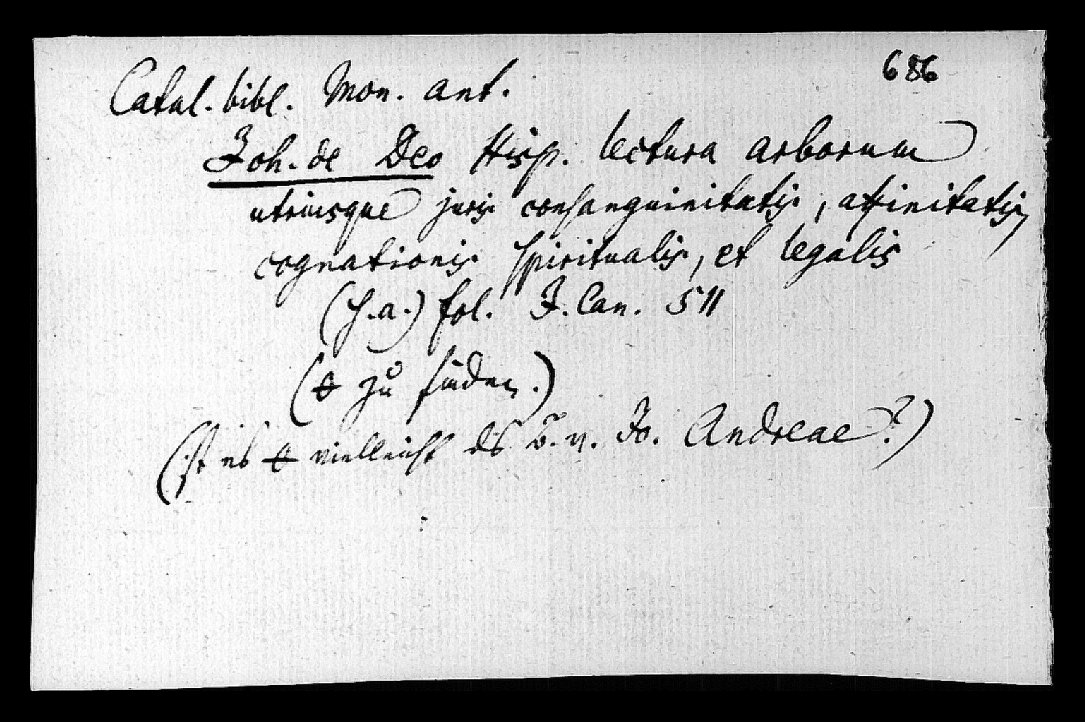 686
Catal. bibl. Mon. ant.
Joh. de Deo Hisp. lectura arborum
utriusque juris consanguinitatis, affinitatis,
cognationis spiritualis, et legalis
(s.a.) fol. J. Can. 511
(zu finden.)
(ist es vielleicht v. Jo. Andreae?)